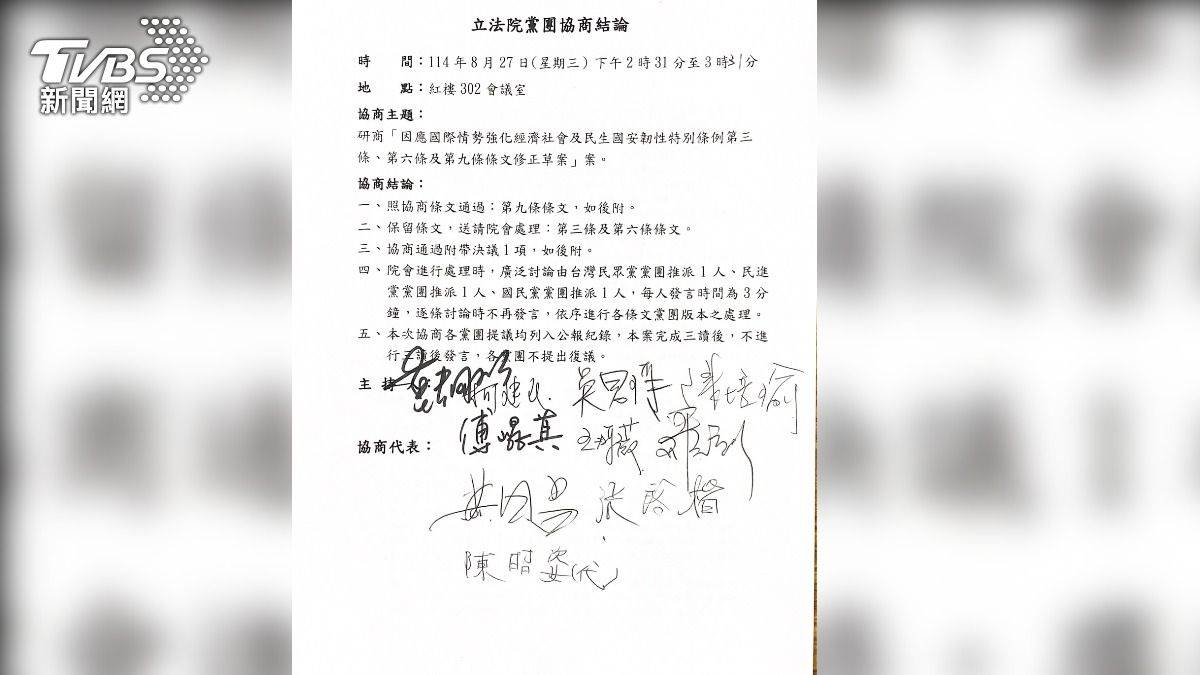 TVBS
新聞網
立法院黨團協商結論
時 間：114年8月27日(星期三)下午2時31分至3時31分
地 點：紅樓302會議室
協商主題：
研商「因應國際情勢強化經濟社會及民生國安韌性特別條例第三
條、第六條及第九條條文修正草案」案。
協商結論：
一、照協商條文通過：第九條條文，如後附。
二、保留條文，送請院會處理：第三條及第六條條文。
三、協商通過附帶決議1項，如後附。
四、院會進行處理時，廣泛討論由台灣民眾黨黨團推派1人、民進
黨黨團推派1人、國民黨黨團推派1人，每人發言時間為3分
鐘，逐條討論時不再發言，依序進行各條文黨團版本之處理。
五、本次協商各黨團提議均列入公報紀錄，本案完成三讀後，不進
行三讀後發言，各黨團不提出復議。
主持人：柯建民 吳思瑤 陳培瑜
協商代表：傅崐萁 羅
張啓楷
陳昭姿(代)